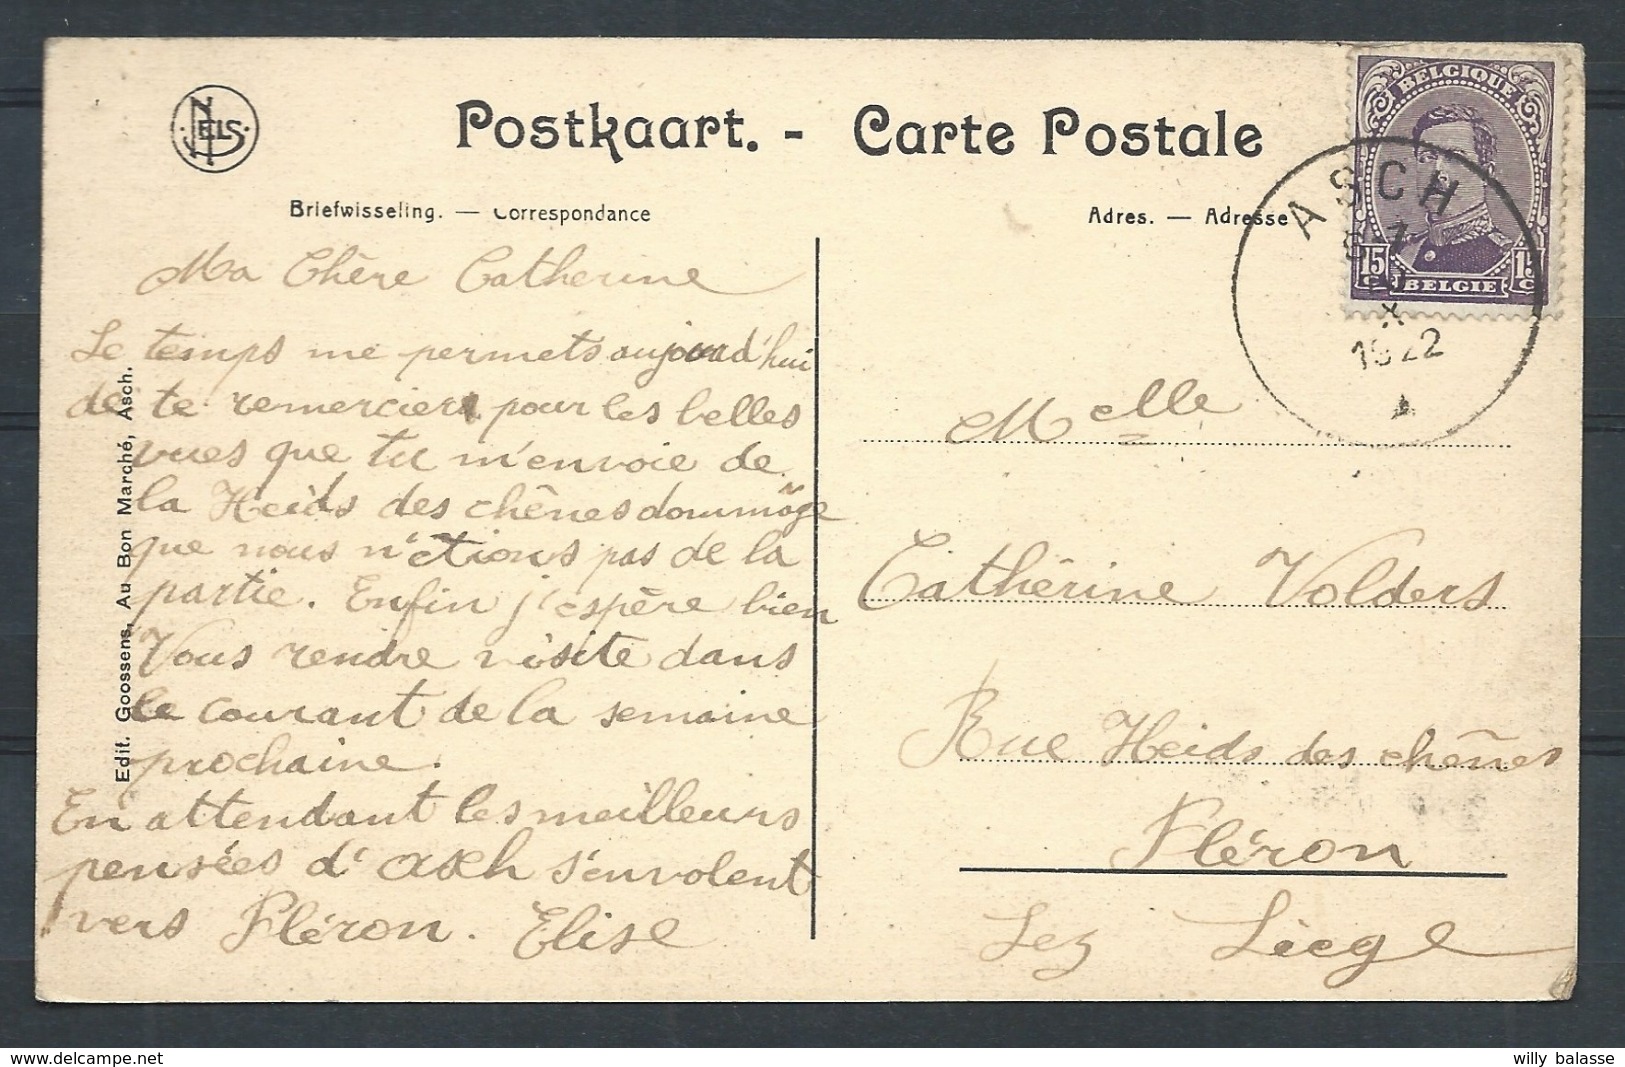 NELS
Postkaart. - Carte Postale
Briefwisseling. — Correspondance
Adres. — Adresse
BELGIQUE
15 C 15 C
BELGIE
ASCH
1922
Ma Chère Catherine
Le temps me permets aujourd'hui
de te remercier pour les belles
vues que tu m'envoie de
la Heids des chênes dommage
que nous n'étions pas de la
partie. Enfin j'espère bien
Vous rendre visite dans
le courant de la semaine
prochaine.
En attendant les meilleurs
pensées d'asch s'envolent
vers Fléron. Elise
Edit. Goossens, Au Bon Marché, Asch.
Melle
Cathérine Volders
Rue Heids des chênes
Fléron
Lez Liège
willy balasse